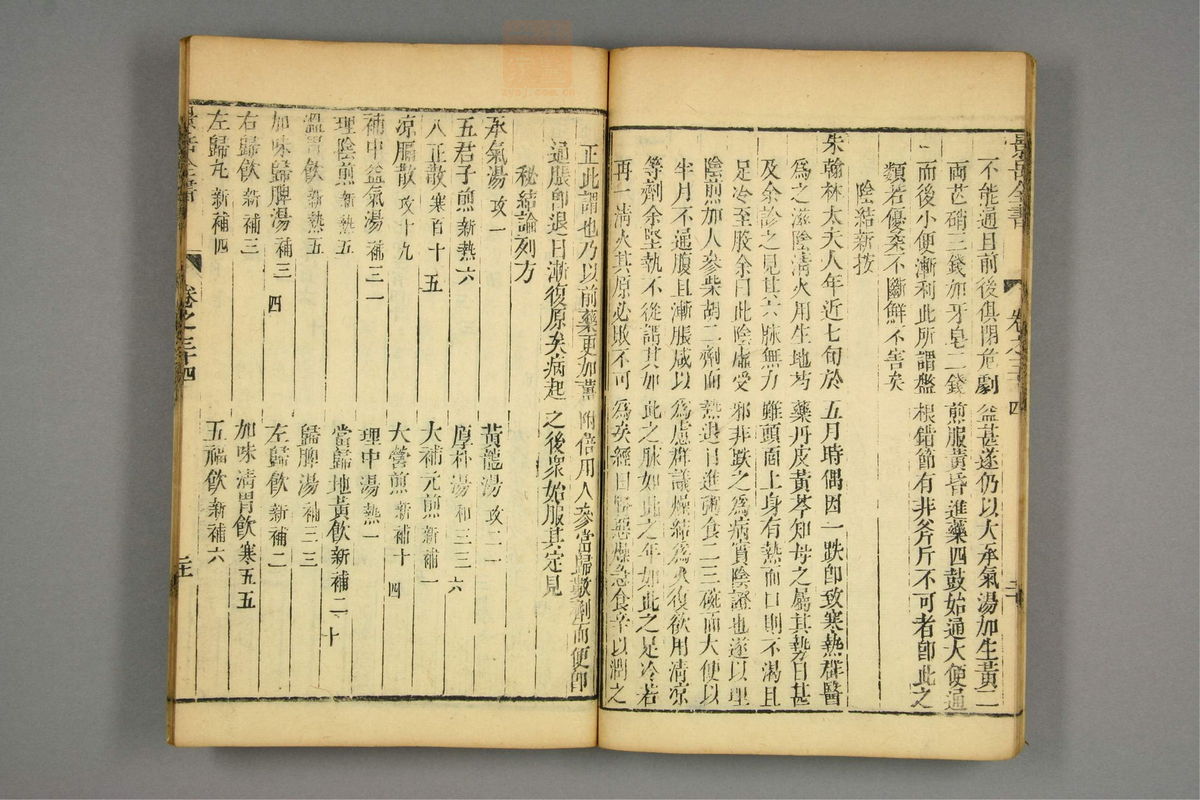 景岳全書 卷之三十四
不能通且前後俱閉危劇益甚遂仍以大承氣湯加生黃二
兩芒硝三錢加牙皂二錢煎服黃昏進藥四鼓始通大便通
而後小便漸利此所謂盤根錯節有非斧斤不可者即此之
類若優柔不斷鮮不害矣
陰結新按
朱翰林太夫人年近七旬於五月時偶因一跌即致寒熱群醫
為之滋陰清火用生地芍藥丹皮黃芩知母之屬其勢日甚
及余診之見其六脉無力雖頭面上身有熱而口則不渴且
足冷至股余曰此陰虛受邪非跌之為病實陰證也遂以理
陰煎加人參柴胡二劑而熱退日進粥食二三碗而大便以
半月不通腹且漸脹咸以為慮群議燥結為火復欲用清凉
等劑余堅執不從謂其如此之脉如此之年如此之足冷若
再一清火其原必敗不可為矣經曰腎惡燥急食辛以潤之
正此謂也乃以前藥更加薑附倍用人參當歸數劑而便即
通脹即退日漸復原矣病起之後衆始服其定見
秘結論列方
承氣湯 攻一 黃龍湯 攻二一
五君子煎 新熱六 厚朴湯 和三三六
八正散 寒百十五 大補元煎 新補一
凉膈散 攻十九 大營煎 新補十四
補中益氣湯 補三一 理中湯 熱一
理陰煎 新熱五 當歸地黃飲 新補二十
溫胃飲 新熱五 歸脾湯 補三三
加味歸脾湯 補三四 左歸飲 新補二
右歸飲 新補三 加味清胃飲 寒五五
左歸丸 新補四 五福飲 新補六
景岳全書 卷之三十四